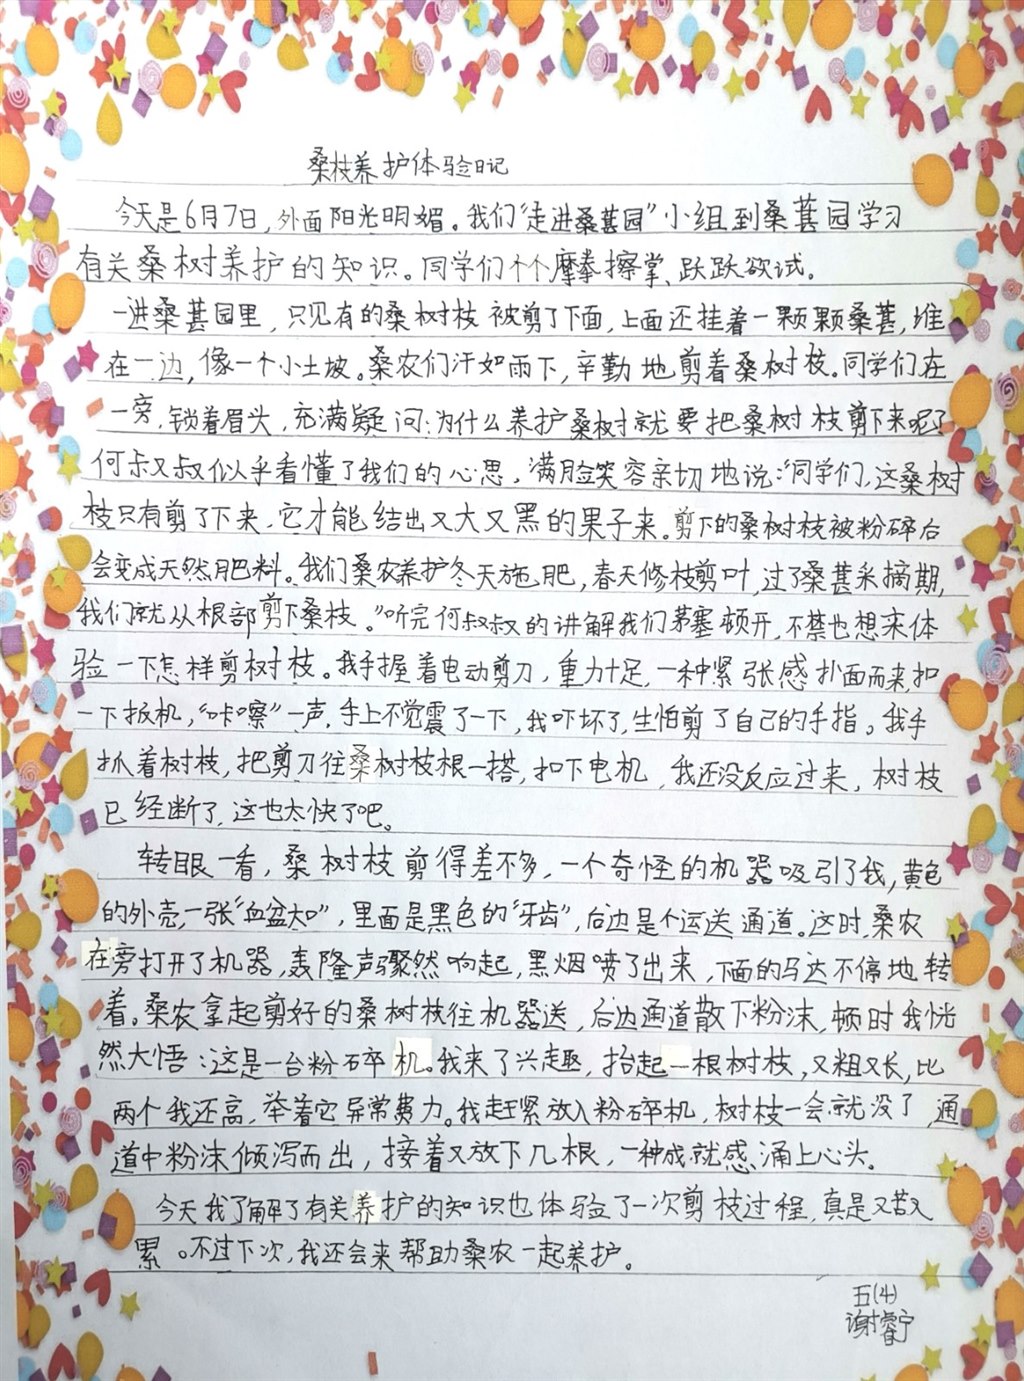 桑枝养护体验日记
今天是6月7日,外面阳光明媚。我们“走进桑葚园”小组到桑葚园学习
有关桑树养护的知识。同学们个个摩拳擦掌、跃跃欲试。
一进桑葚园里,只见有的桑树枝被剪了下面,上面还挂着一颗颗桑葚,堆
在一边,像一个小土坡。桑农们汗如雨下,辛勤地剪着桑树枝。同学们在
一旁,锁着眉头,充满疑问:为什么养护桑树就要把桑树枝剪下来呢?
何叔叔似乎看懂了我们的心思,满脸笑容亲切地说:“同学们,这桑树
枝只有剪了下来,它才能结出又大又黑的果子来。剪下的桑树枝被粉碎后
会变成天然肥料。我们桑农养护冬天施肥,春天修枝剪叶,过了桑葚采摘期,
我们就从根部剪下桑枝。”听完何叔叔的讲解我们茅塞顿开,不禁也想来体
验一下怎样剪树枝。我手握着电动剪刀,重力十足,一种紧张感扑面而来,扣
一下扳机,“咔嚓”一声,手上不觉震了一下,我吓坏了,生怕剪了自己的手指。我手
抓着树枝,把剪刀往桑树枝根一搭,扣下电机,我还没反应过来,树枝
已经断了,这也太快了吧。
转眼一看,桑树枝剪得差不多,一个奇怪的机器吸引了我,黄色
的外壳,一张“血盆大口”,里面是黑色的“牙齿”,后边是个运送通道。这时,桑农
在旁打开了机器,轰隆声骤然响起,黑烟喷了出来,下面的马达不停地转
着。桑农拿起剪好的桑树枝往机器送,后边通道散下粉沫,顿时我恍
然大悟:这是一台粉碎机。我来了兴趣,抬起一根树枝,又粗又长,比
两个我还高,举着它异常费力。我赶紧放入粉碎机,树枝一会就没了,通
道中粉沫倾泻而出,接着又放下几根,一种成就感涌上心头。
今天我了解了有关养护的知识也体验了一次剪枝过程,真是又苦又
累。不过下次,我还会来帮助桑农一起养护。
五(4)
谢睿宁